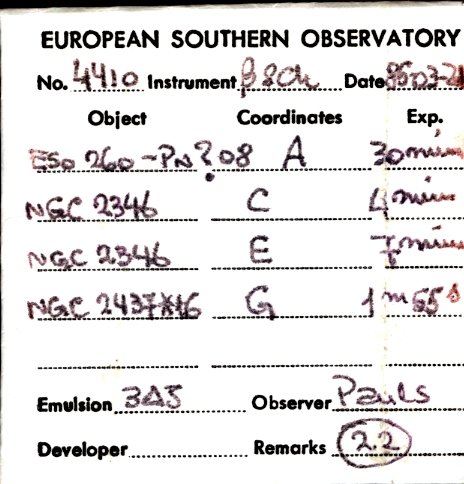 EUROPEAN SOUTHERN OBSERVATORY
No. 4410 Instrument Date 85-03-21
Object Coordinates Exp.
ESO 260-PN?08 A 30 min
NGC 2346 C 4 min
NGC 2346 E 7 min
NGC 2437 G 1 m 55 s
Emulsion Observer Pauls
Developer Remarks 2.2